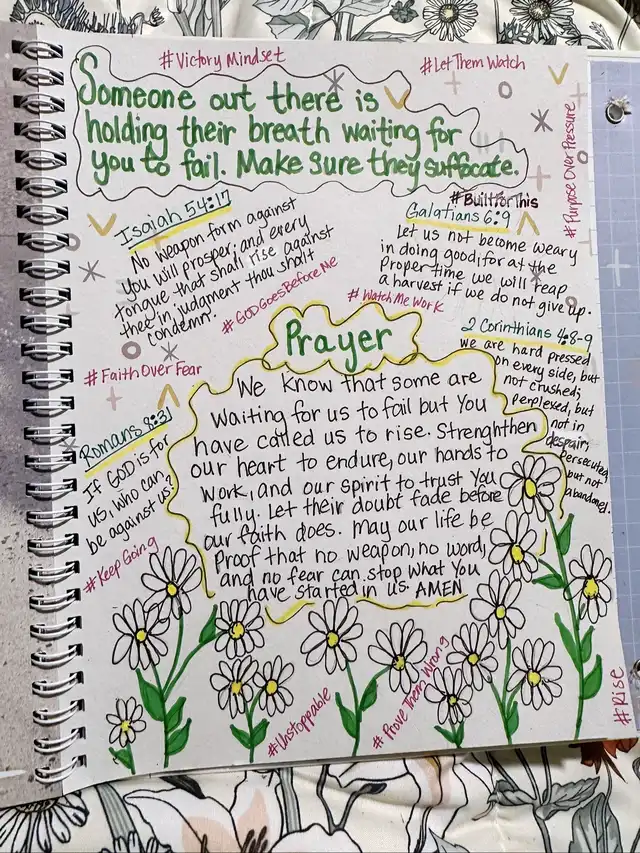 #Victory Mindset
#LetThem Watch
Someone out there is
holding their breath waiting for
you to fail. Make sure they suffocate.
#Purpose Over Pressure
#BuiltForThis
Isaiah 54:17
No weapon form against
you will prosper; and every
tongue that shall rise against
thee in judgment thou shalt
condemn.
#GODGoesBeforeMe
Galatians 6:9
Let us not become weary
in doing good; for at the
proper time we will reap
a harvest if we do not give up.
#WatchMeWork
2 Corinthians 4:8-9
we are hard pressed
on every side, but
not crushed;
perplexed, but
not in
despair;
Persecuted,
but not
abandoned.
#Faith Over Fear
Romans 8:31
If GOD is for
us, who can
be against us?
#Keep Going
Prayer
We know that some are
waiting for us to fail but You
have called us to rise. Strenghthen
our heart to endure, our hands to
work, and our spirit to trust You
fully. Let their doubt fade before
our faith does. May our life be
Proof that no weapon, no word,
and no fear can stop what You
have started in us. AMEN
#Unstoppable
#Prove Them Wrong
#Rise